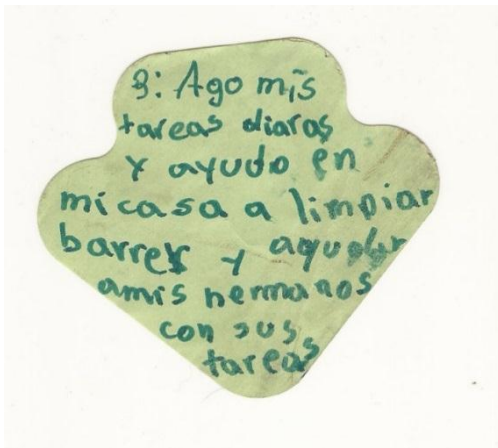 3: Ago mis
tareas diaras
y ayudo en
micasa a limpiar
barrer y aqudar
amis hermanos
con sus
tareas